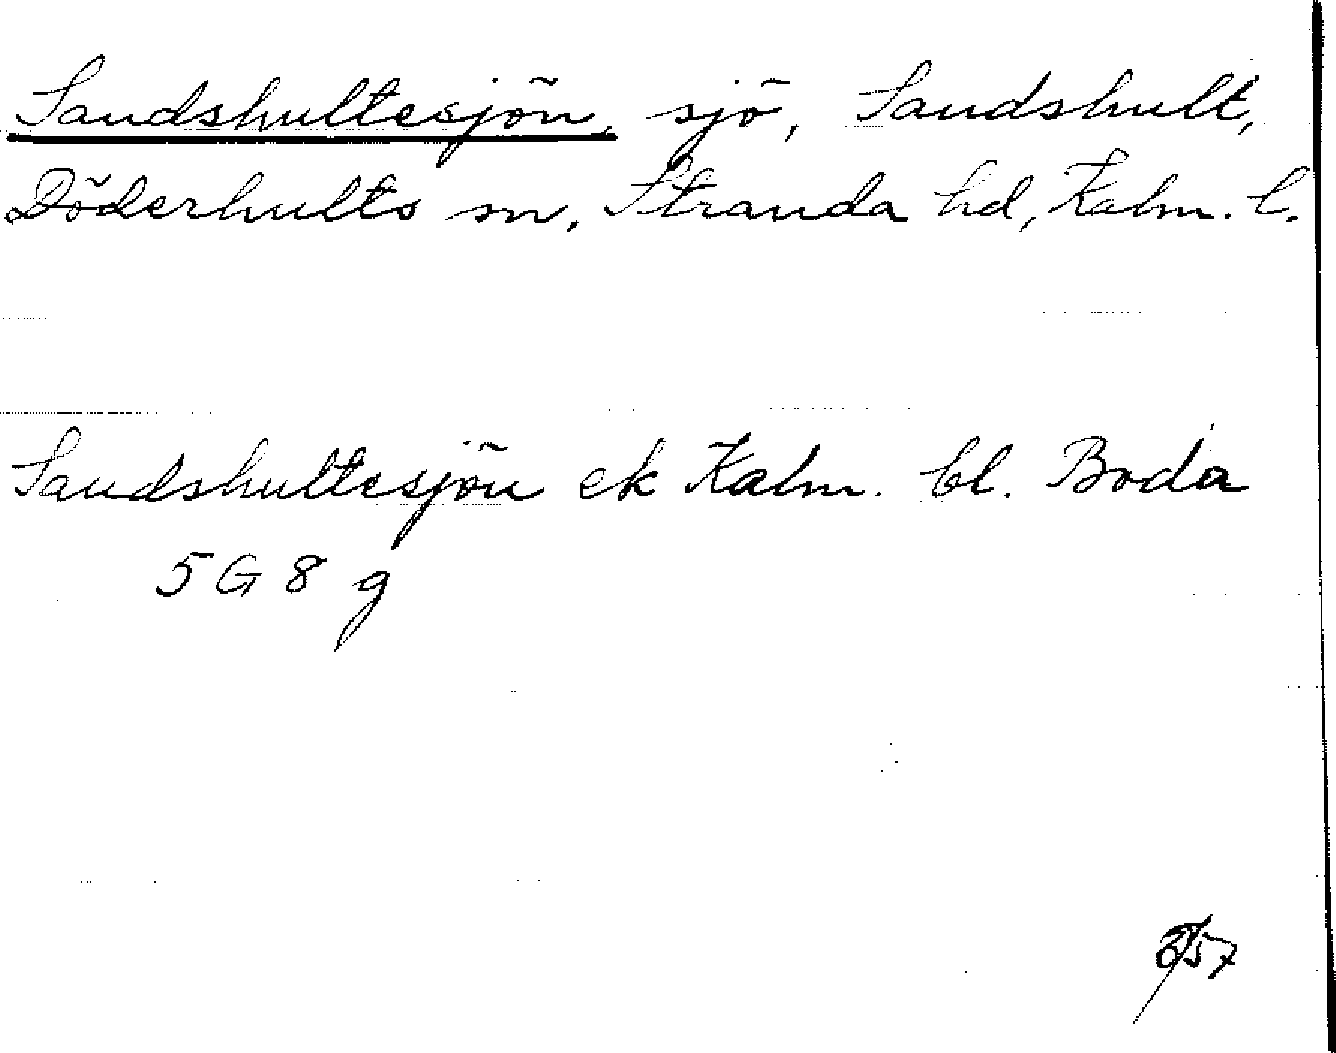 Sandshultesjön, sjö, Sandshult,
Döderhults sn, Stranda hd, Kalm. l.
Sandshultesjön ek Kalm. bl. Boda
5 G 8 g